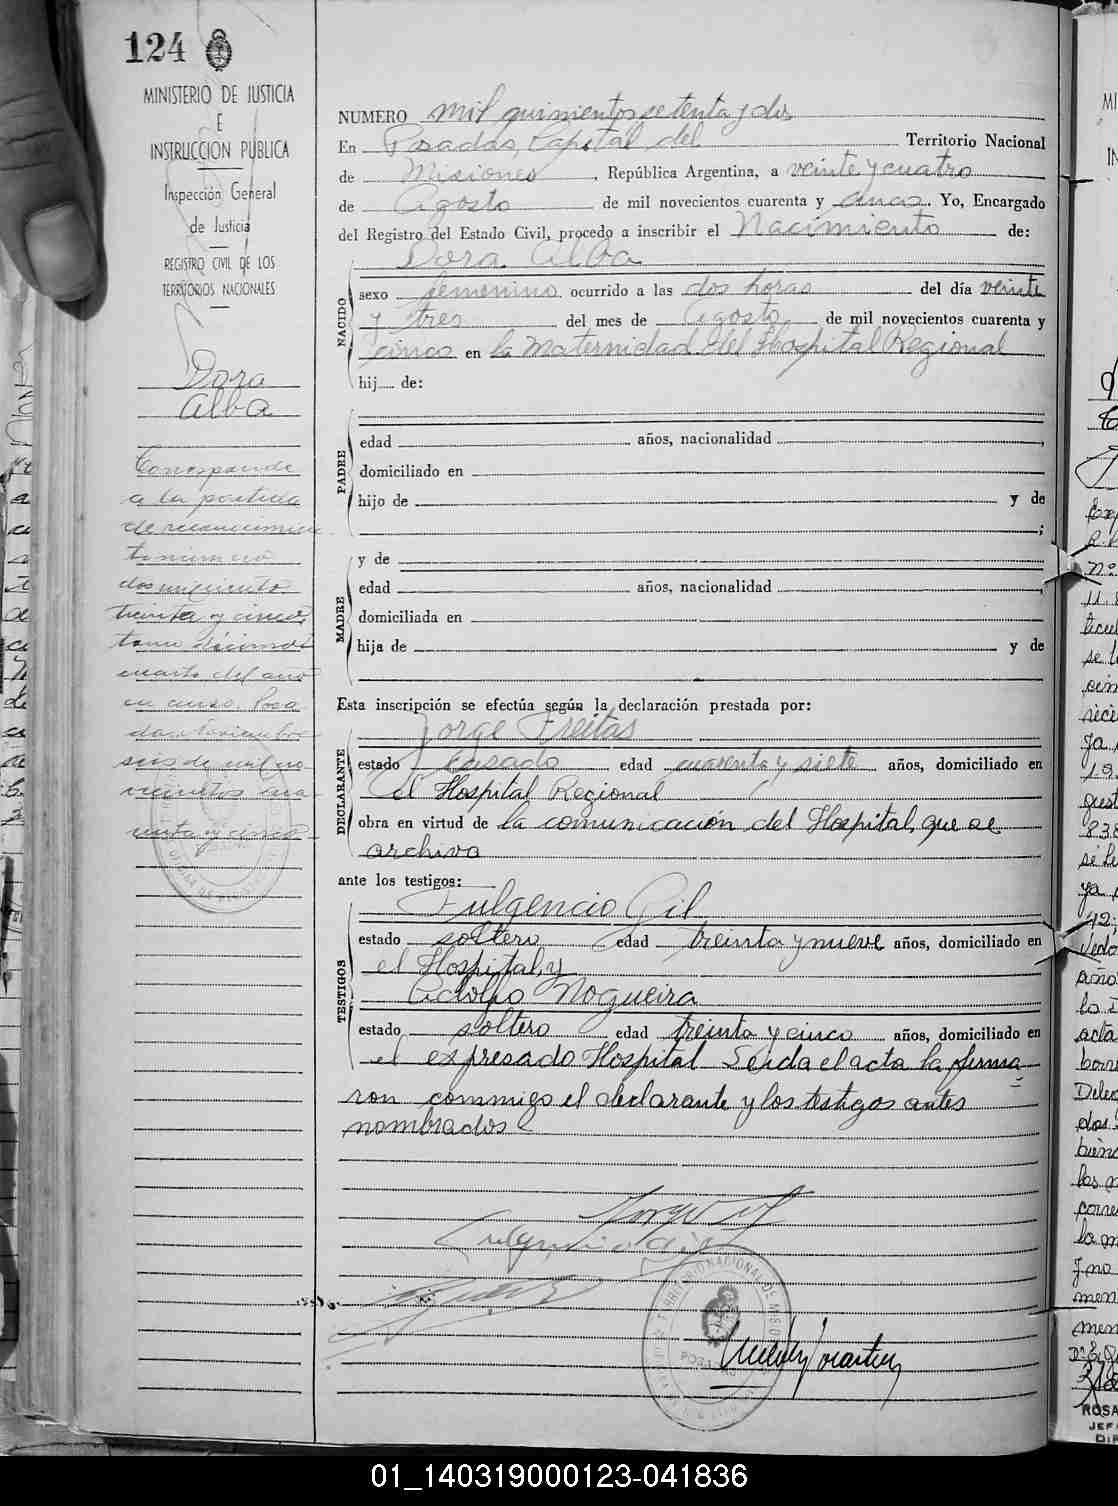 124
MINISTERIO DE JUSTICIA
E
INSTRUCCION PUBLICA
Inspección General
de Justicia
REGISTRO CIVIL DE LOS
TERRITORIOS NACIONALES
Dora
Alba
Corresponde
a la partida
de reconocimien
to número
dos mil ciento
treinta y cinco,
tomo décimo
cuarto del año
en curso. Posa
das, Noviembre
seis de mil no-
vecientos cua-
renta y cinco
NUMERO mil quinientos setenta y dos
En Posadas, Capital del Territorio Nacional
de Misiones, República Argentina, a veinte y cuatro
de Agosto de mil novecientos cuarenta y cinco. Yo, Encargado
del Registro del Estado Civil, procedo a inscribir el Nacimiento de:
Dora Alba
NACIDO
sexo femenino ocurrido a las dos horas del día veinte
y tres del mes de Agosto de mil novecientos cuarenta y
cinco en la Maternidad del Hospital Regional
hij de:
PADRE
edad años, nacionalidad ,
domiciliado en
hijo de y de
;
MADRE
y de
edad años, nacionalidad ,
domiciliada en
hija de y de
Esta inscripción se efectúa según la declaración prestada por:
Jorge Freitas
DECLARANTE
estado casado edad cuarenta y siete años, domiciliado en
el Hospital Regional
obra en virtud de la comunicación del Hospital, que se
archiva
ante los testigos:
Fulgencio Gil
TESTIGOS
estado soltero edad treinta y nueve años, domiciliado en
el Hospital, y
Adolfo Nogueira
estado soltero edad treinta y cinco años, domiciliado en
el expresado Hospital Leida el acta la firma
ron conmigo el declarante y los testigos antes
nombrados
01_140319000123-041836